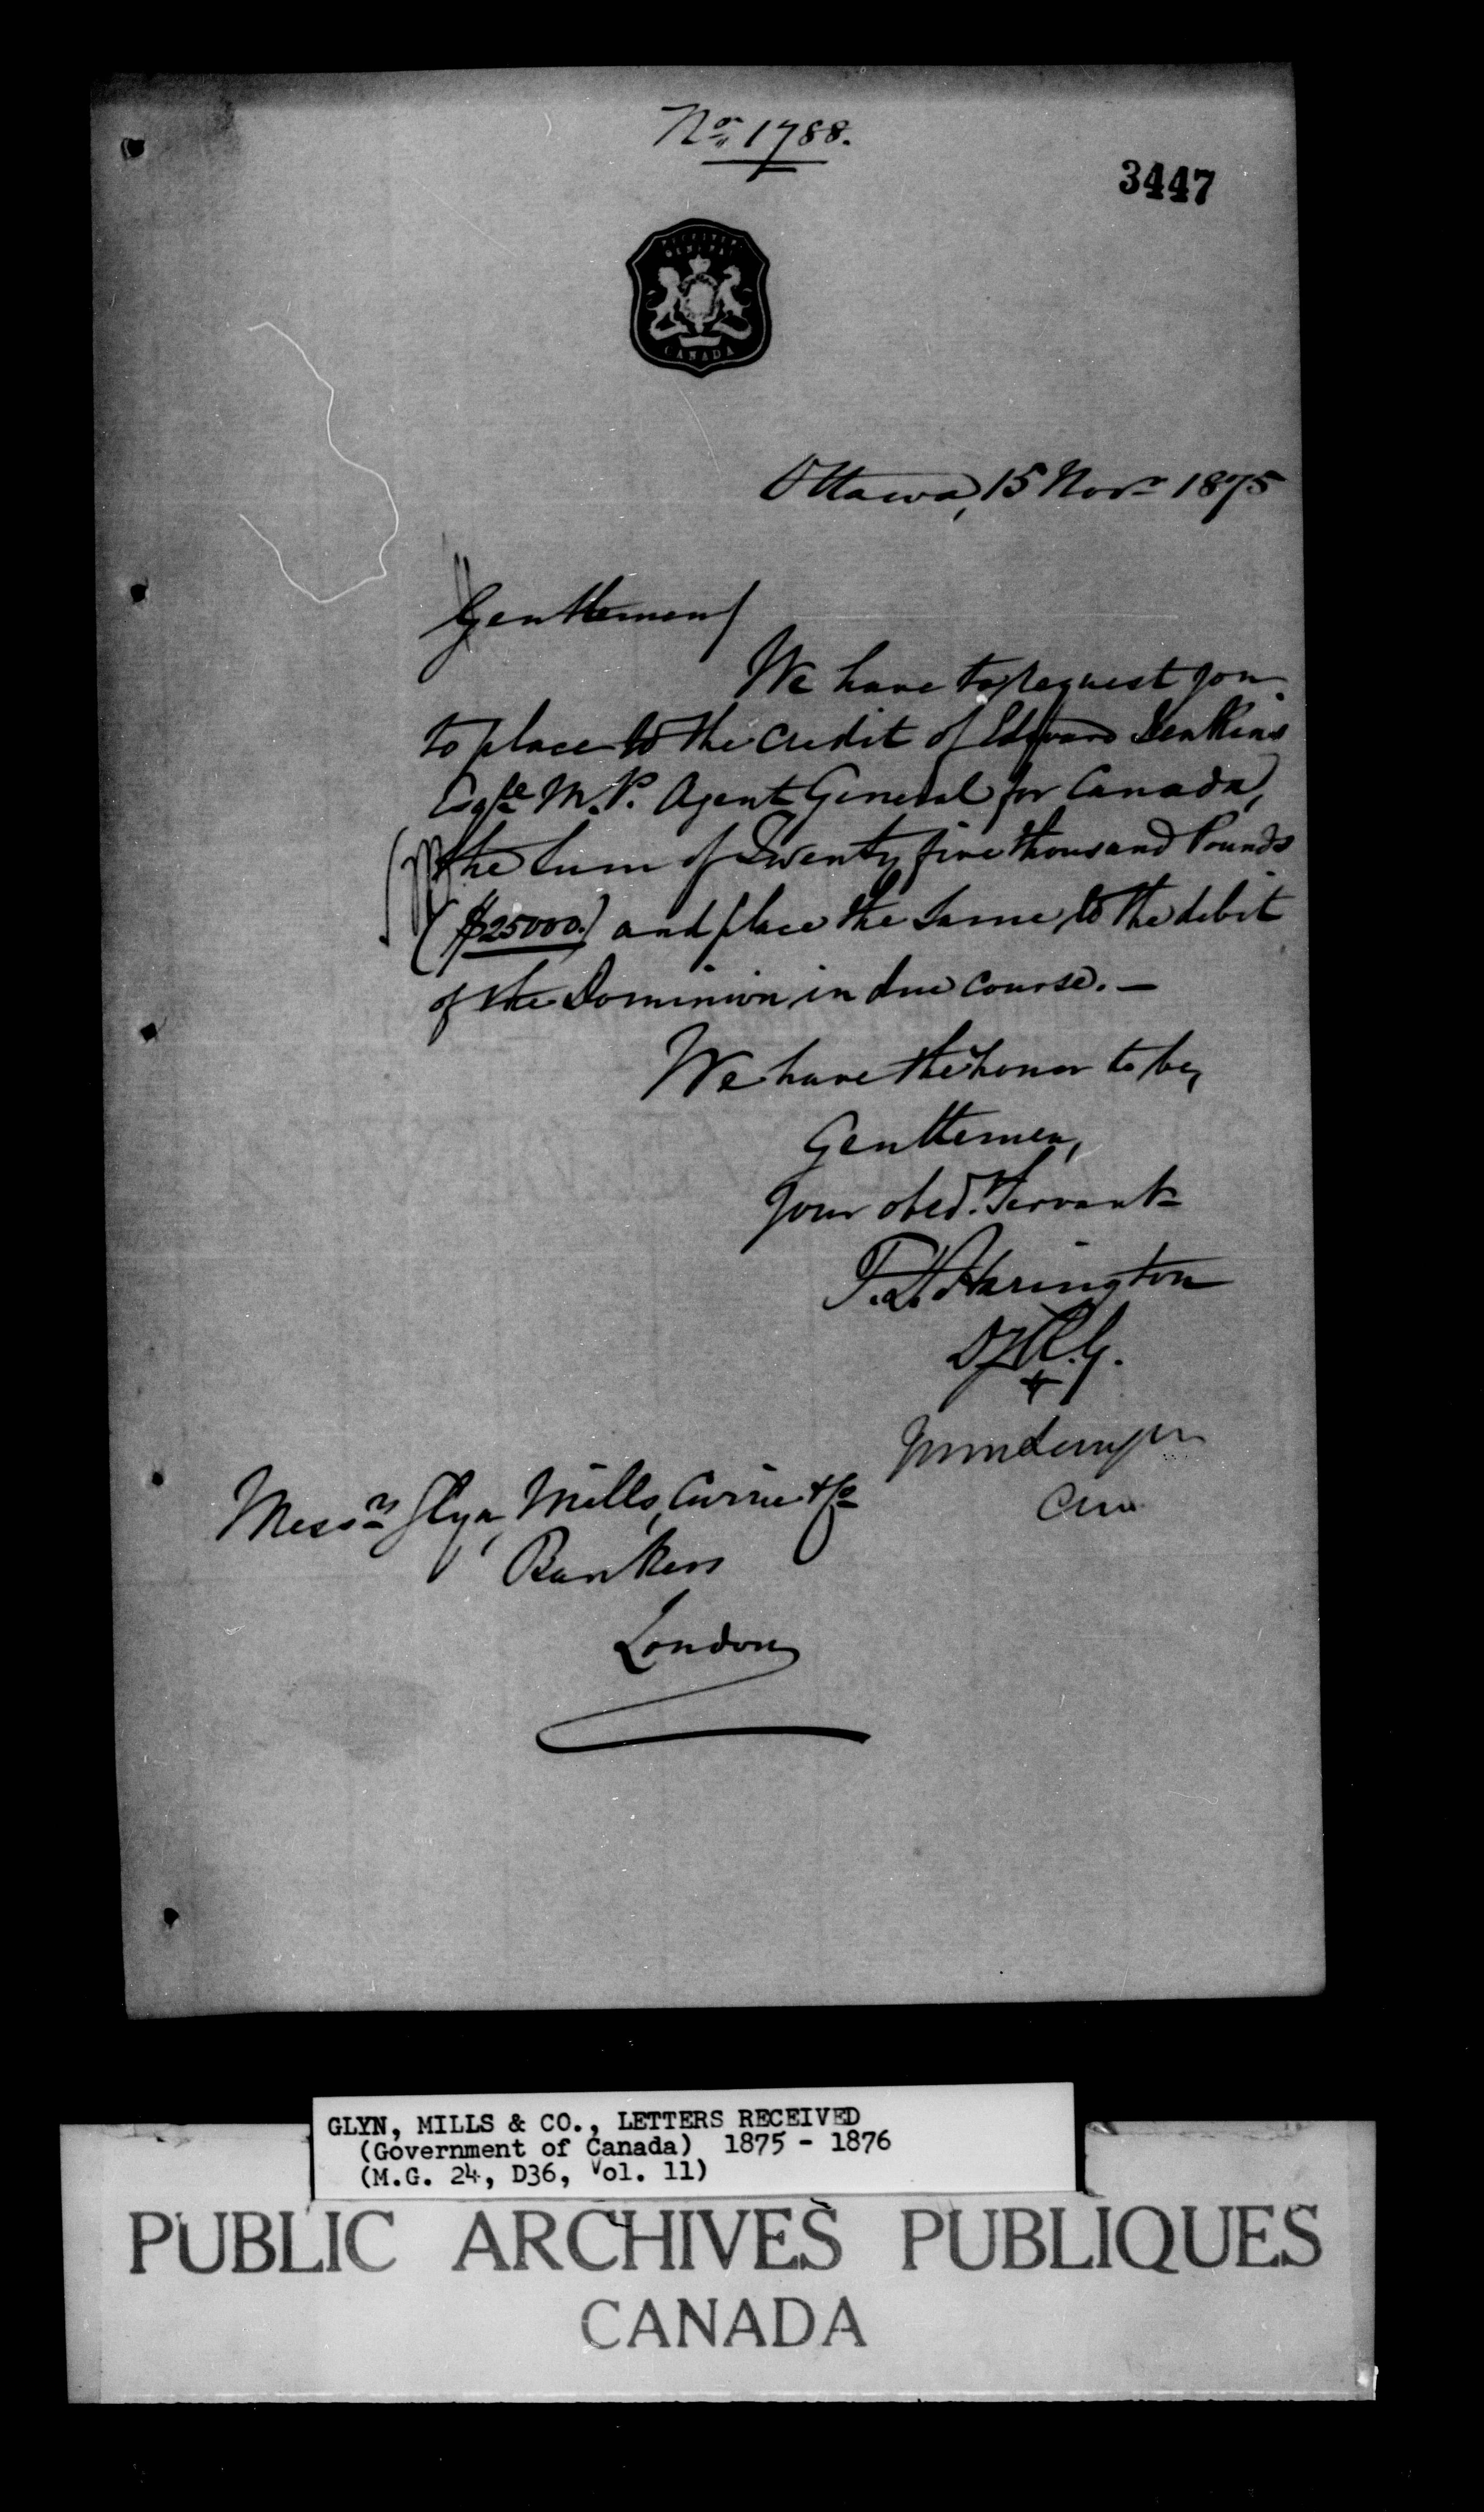 No. 1788.
3447
RECEIVER
GENERAL
CANADA
Ottawa, 15 Novr 1875
Gentlemen/
We have to request you
to place to the credit of Edward Jenkins
Esqre M.P. Agent General for Canada,
the sum of Twenty five thousand Pounds
(£25000.) and place the same to the debit
of the Dominion in due course. —
We have the honor to be,
Gentlemen,
Your obed. Servants
T. D. Harington
D R. G.
Messrs Glyn, Mills, Currie & Co
Bankers
London
GLYN, MILLS & CO., LETTERS RECEIVED
(Government of Canada) 1875 - 1876
(M.G. 24, D36, Vol. 11)
PUBLIC ARCHIVES PUBLIQUES
CANADA